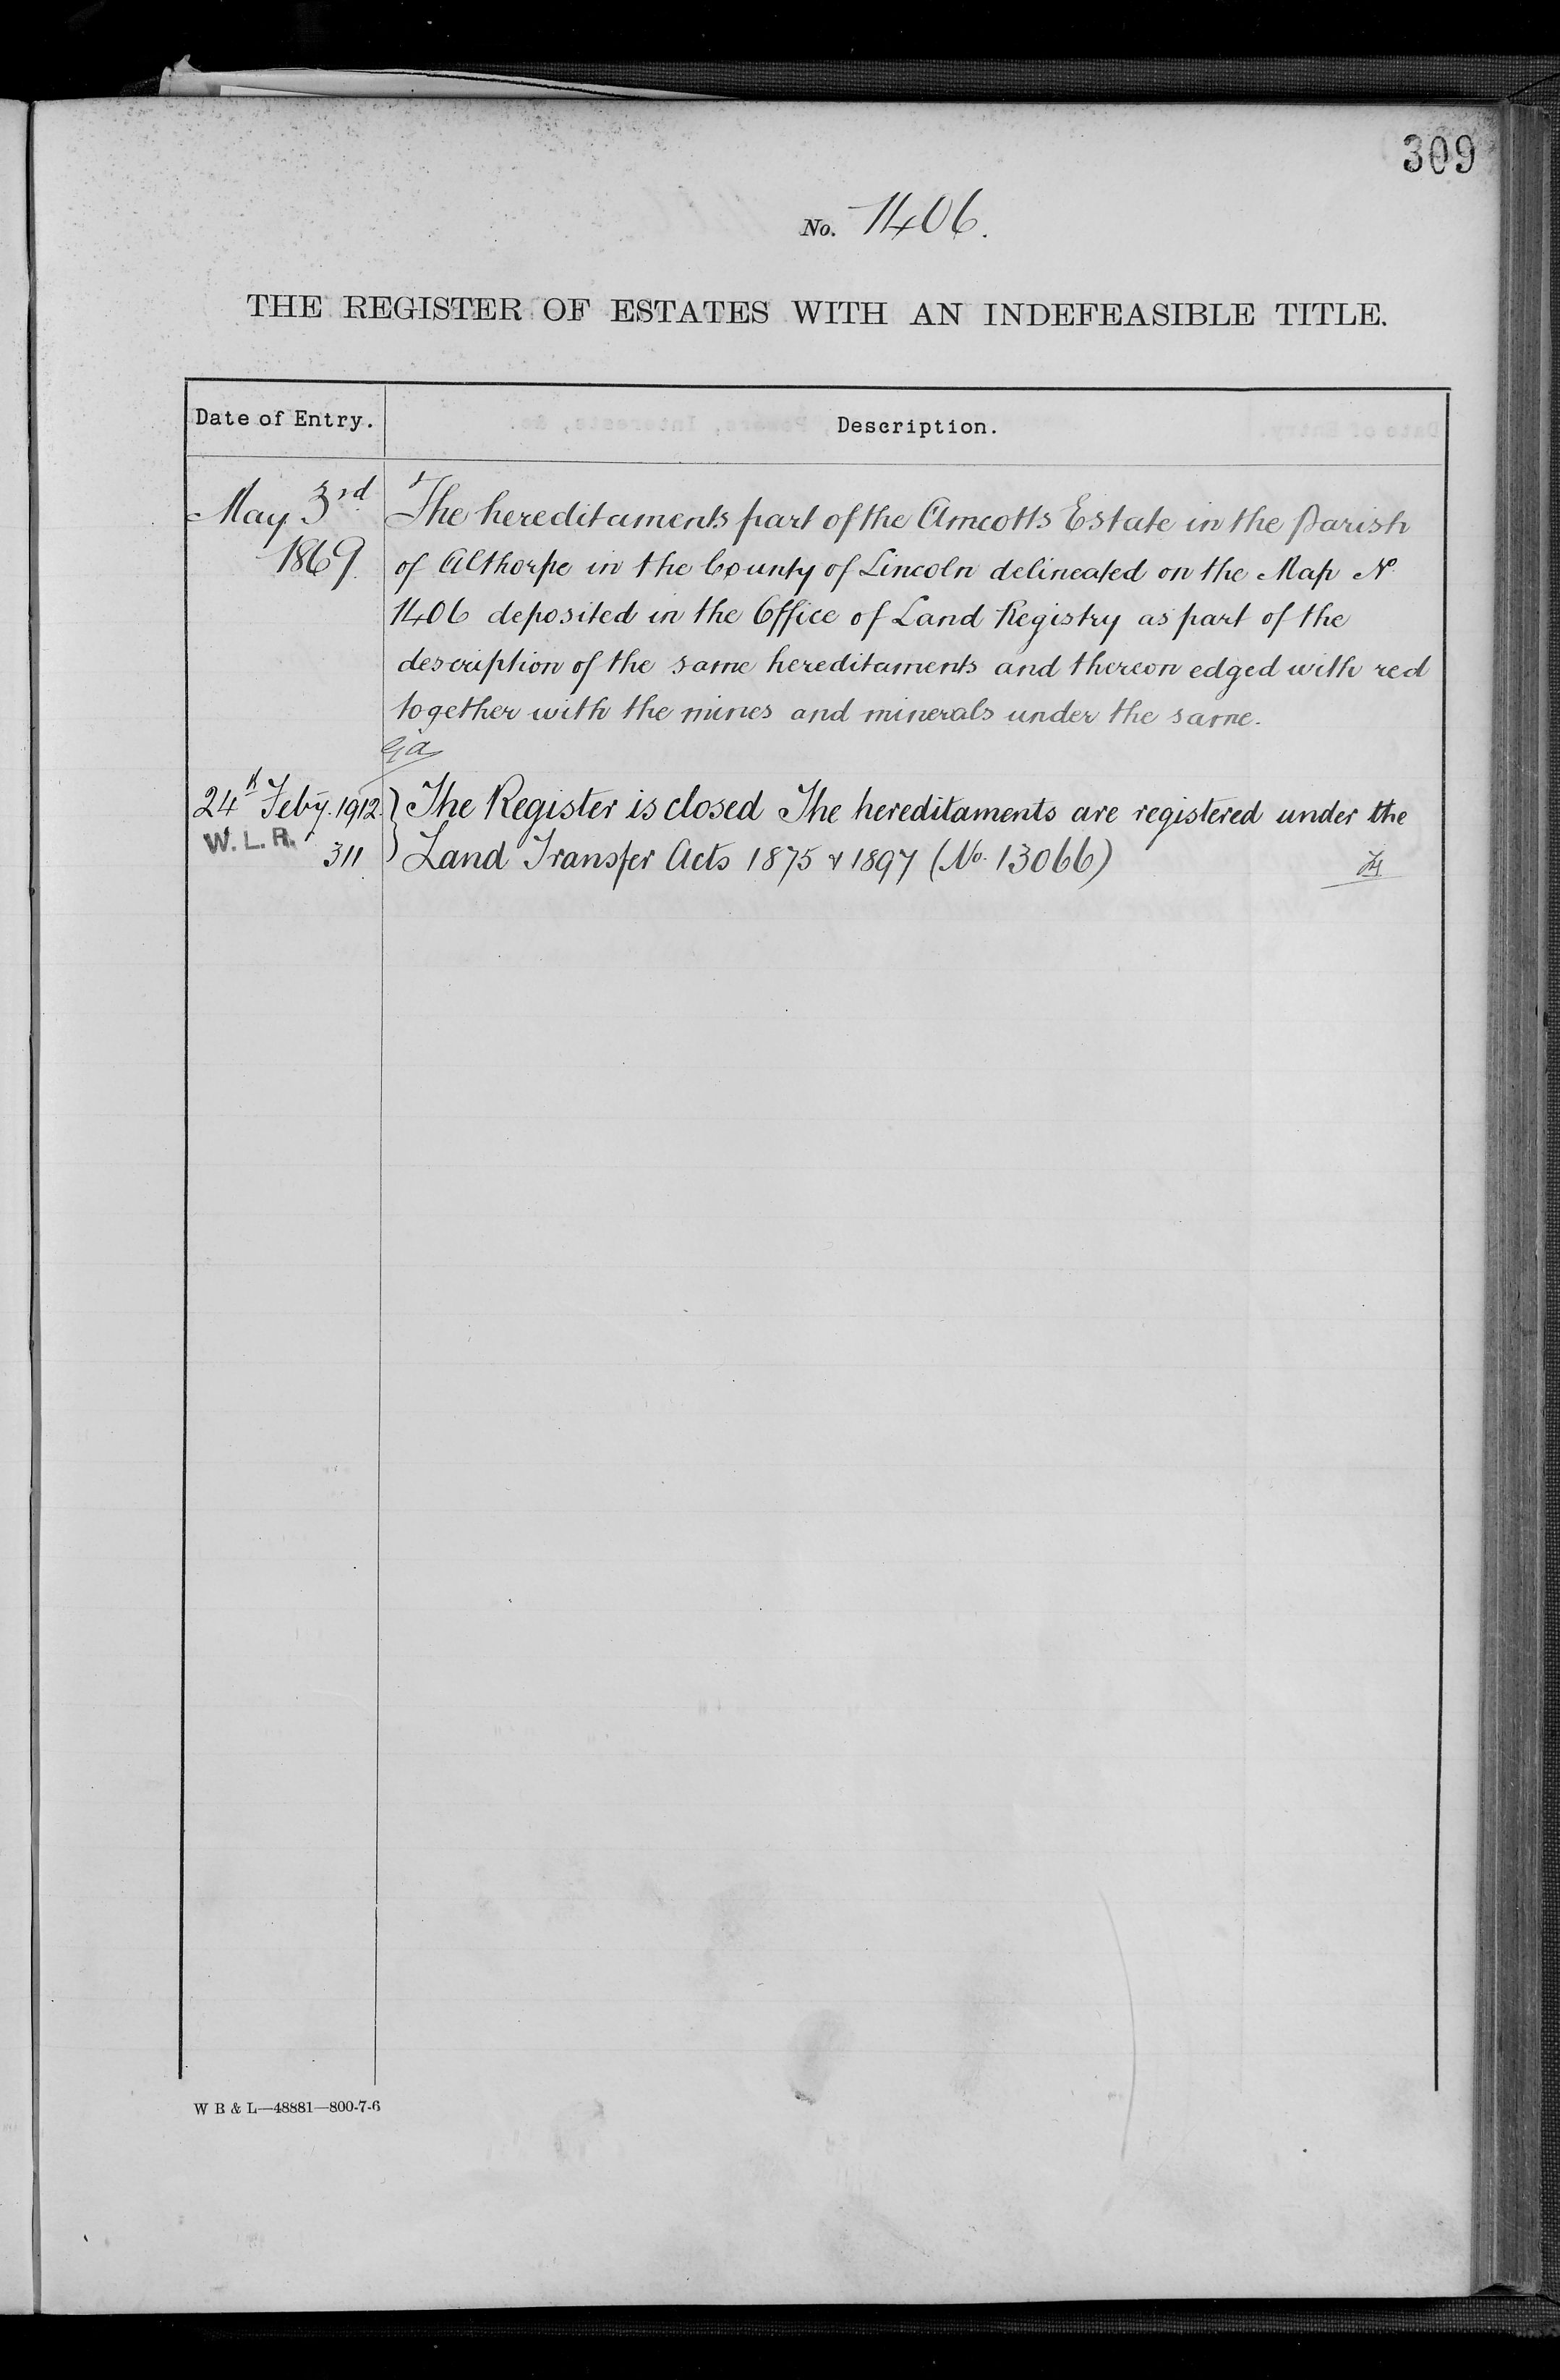 309
No. 1406.
THE REGISTER OF ESTATES WITH AN INDEFEASIBLE TITLE.
Date of Entry.
Description.
May 3rd
1869.
The hereditaments part of the Amcotts Estate in the Parish
of Althorpe in the County of Lincoln delineated on the Map No
1406 deposited in the Office of Land Registry as part of the
description of the same hereditaments and thereon edged with red
together with the mines and minerals under the same.
24th Feby. 1912.
W. L. R.
311
The Register is closed The hereditaments are registered under the
Land Transfer Acts 1875 & 1897 (No. 13066)
W B & L—48881—800-7-6